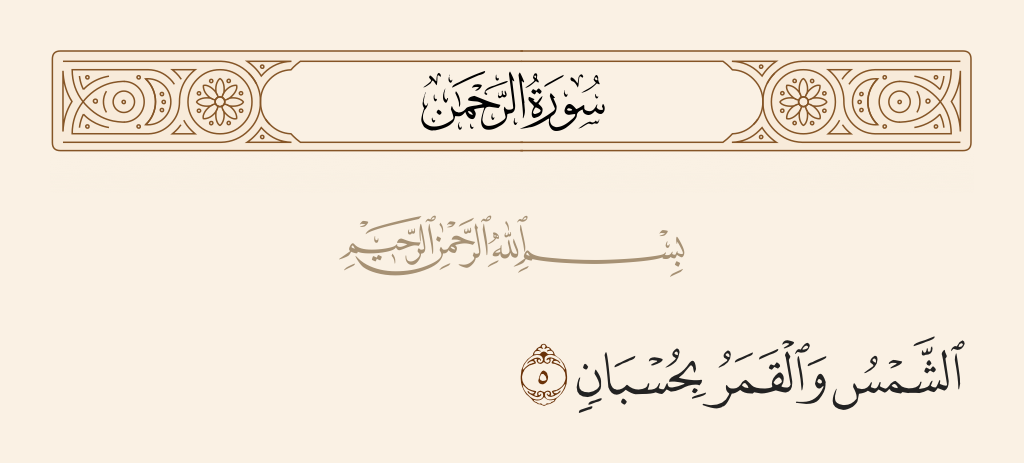 سُورَةُ الرَّحْمَٰن
بِسْمِ ٱللَّهِ ٱلرَّحْمَٰنِ ٱلرَّحِيمِ
ٱلشَّمْسُ وَٱلْقَمَرُ بِحُسْبَانٍ ٥